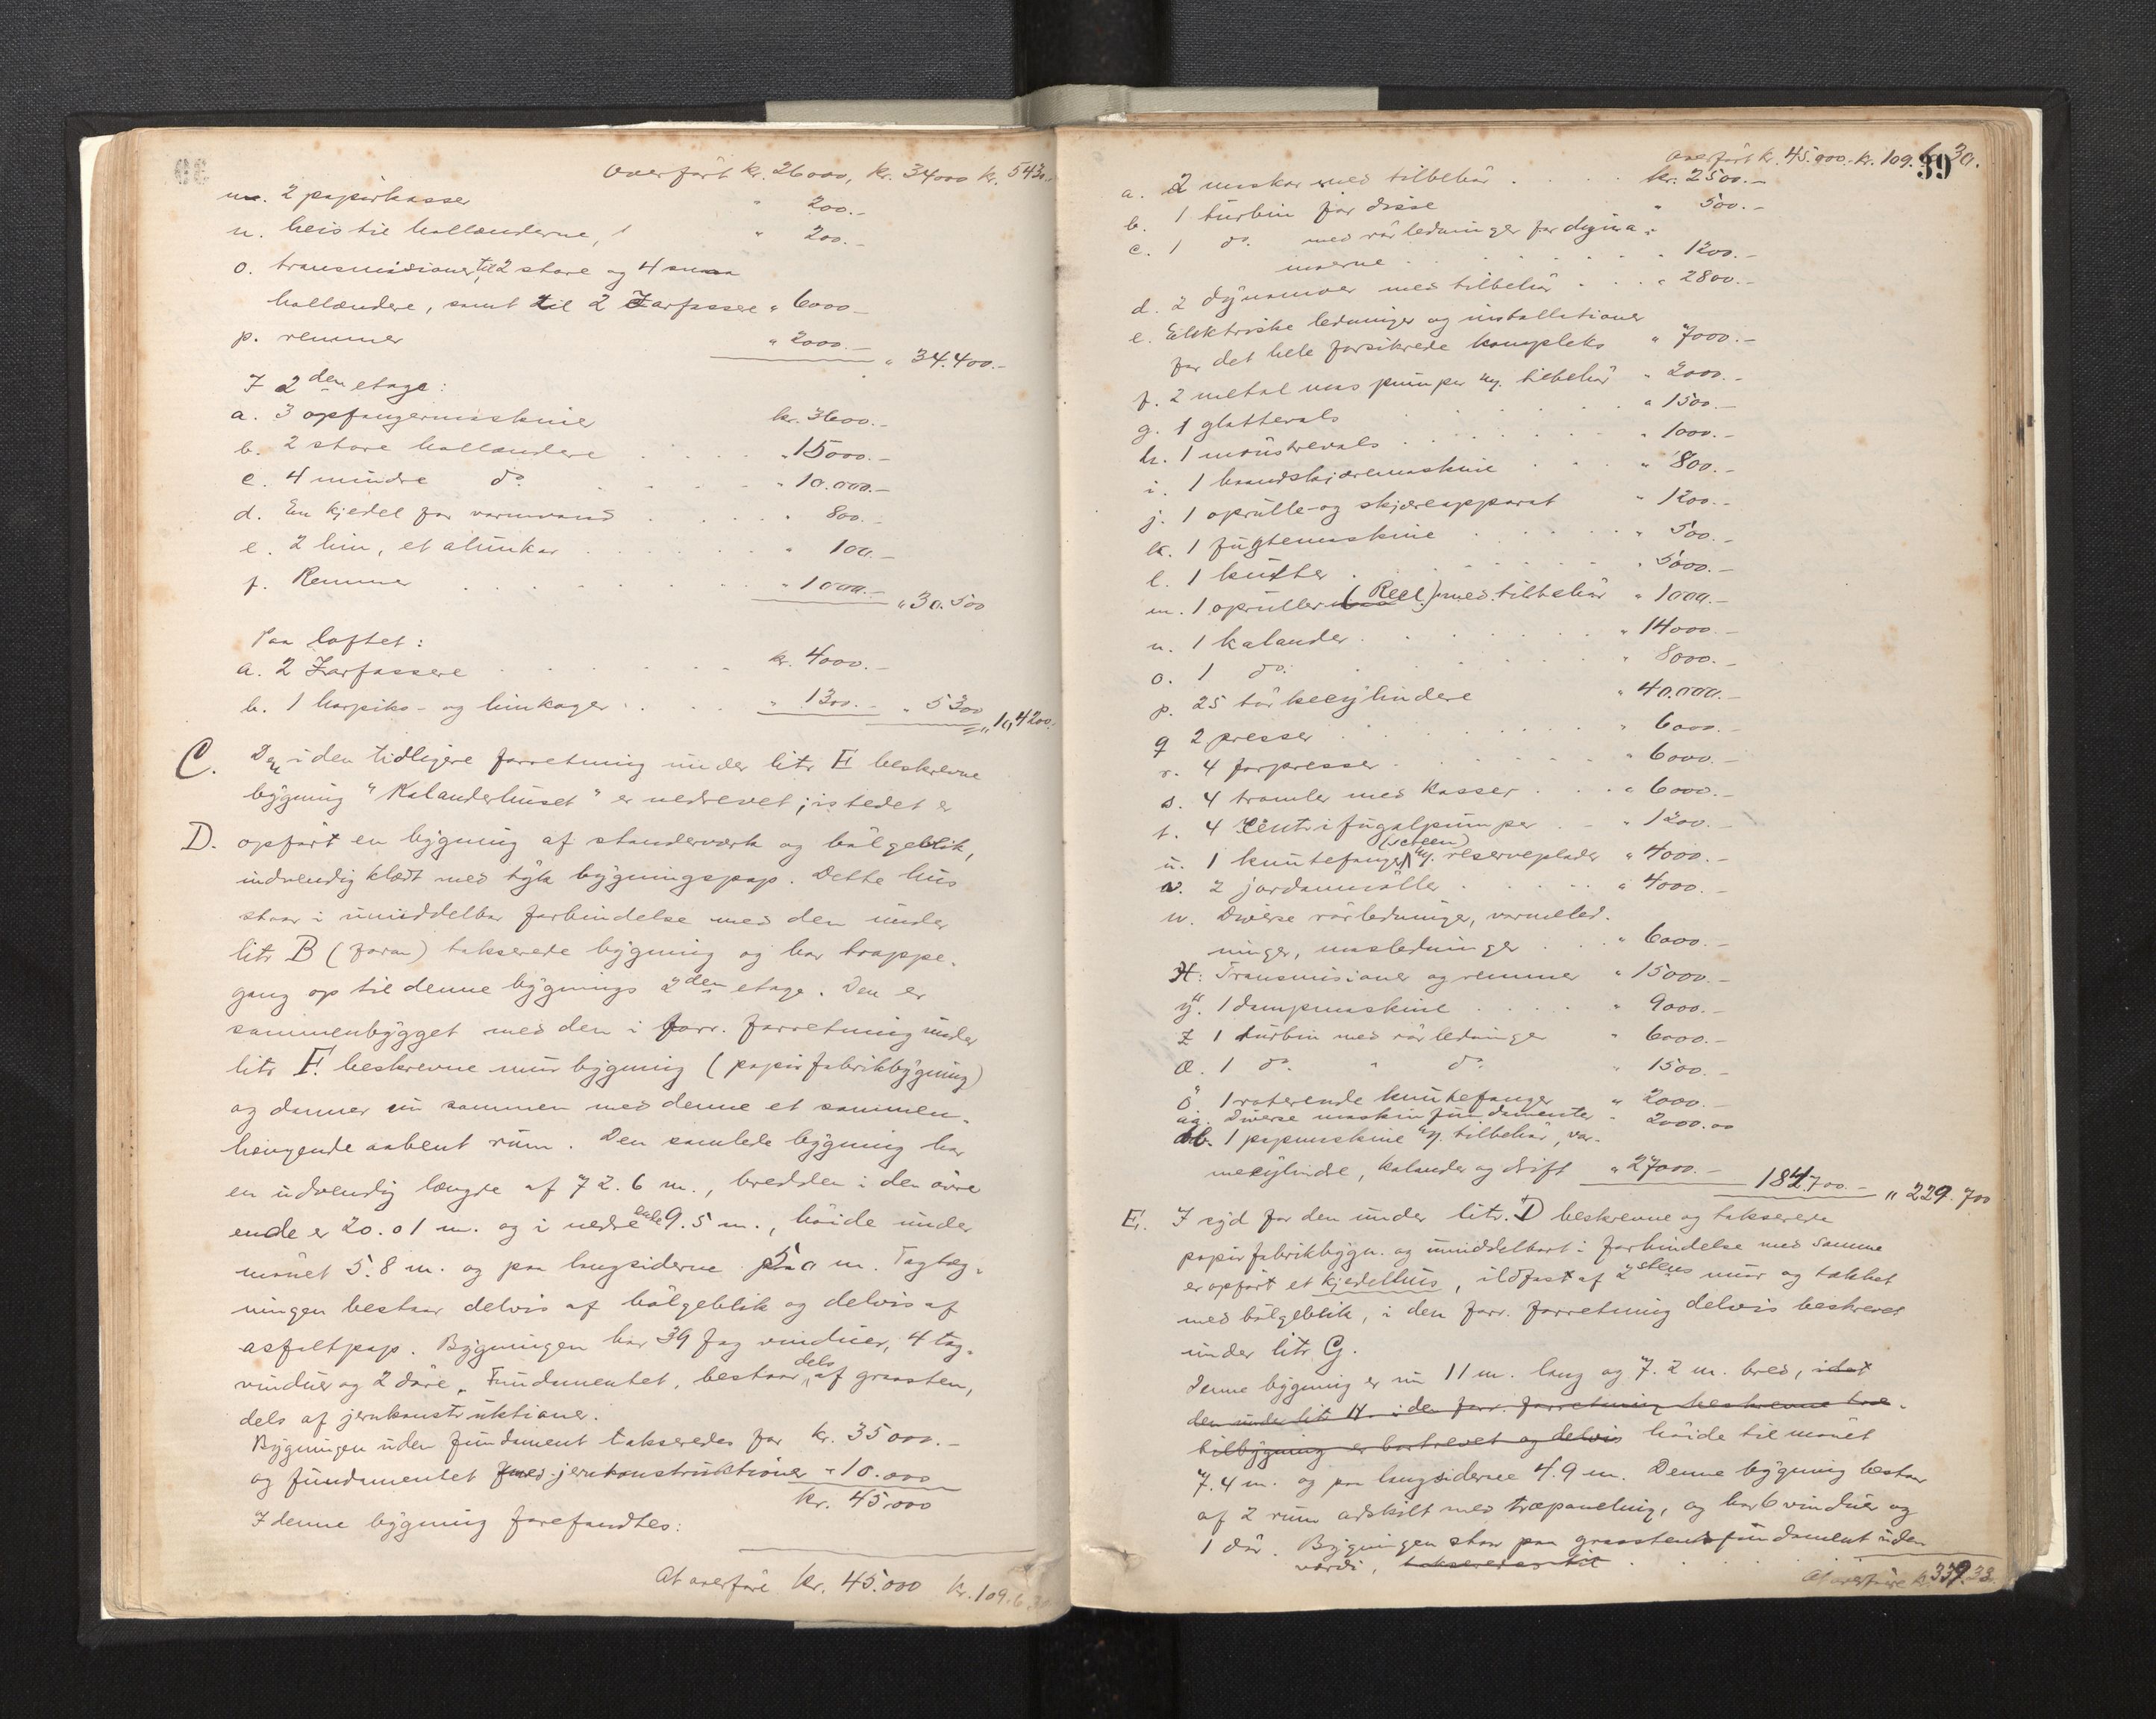 Overført kr. 26000, kr. 34000 kr. 5430
m. 2 papirkasser " 200.-
n. heis til hollænderne, 1 " 200.-
o. transmisioner til 2 store og 4 smaa
hollændere, samt til 2 Zarfasere " 6000-
p. remmer " 2000.- " 34.400.-
I 2den etage:
a. 3 opfangermaskiner kr. 3600.-
b. 2 store hollændere . . . " 15000.-
c. 4 mindre do . . . " 10.000.-
d. En kjedel for varmvand . . . " 800.-
e. 2 lim, et alunkar . . . . " 100.-
f. Remmer . . . . . . " 1000.- " 30.500
Paa loftet:
a. 2 Zarfasere . . . . . . kr. 4000.-
b. 1 harpiks- og limkoger . . . " 1300.- " 5300 " 10,4200.-
C. Den i den tidligere forretning under litr E beskrevne
bygning "Kalanderhuset" er nedrevet; istedet er
D. opført en bygning af standerværk og bølgeblik,
indvendig klædt med tyk bygningspap. Dette hus
staar i umiddelbar forbindelse med den under
litr B (foran) takserede bygning og har trappe-
gang op til denne bygnings 2den etage. Den er
sammenbygget med den i forr. forretning under
litr F. beskrevne mur bygning (papirfabrikbygning)
og danner nu sammen med denne et sammen-
hængende aabent rum. Den samlede bygning har
en udvendig længde af 72.6 m., bredden i den øvre
ende er 20.01 m. og i nedre ende 9.5 m., høide under
mønet 5.8 m. og paa langsiderne 5.0 m. Taglæg-
ningen bestaar delvis af bølgeblik og delvis af
asfaltpap. Bygningen har 39 fag vinduer, 4 tag-
vinduer og 2 døre. Fundamentet, bestaar dels af graasten,
dels af jernkonstruktioner.
Bygningen uden fundament takseredes for kr. 35000.-
og fundamentet med jernkonstruktioner " 10.000
kr. 45.000
I denne bygning forefandtes:
At overføre kr. 45.000 kr. 109.6
39
Overført kr. 45.000.- kr. 109. 30.
a. 2 maskar med tilbehør . . . . kr. 2500.-
b. 1 turbin for disse " 500.-
c. 1 do. med rørledninger for dyna-
moerne . . . . . . . . " 1200.-
d. 2 dynamoer med tilbehør . . . " 2800.-
e. Elektriske ledninger og installationer
for det hele forsikrede kompleks " 7000.-
f. 2 metal mas pumper m. tilbehør " 2000.-
g. 1 glattevals . . . . . . . " 1500.-
h. 1 mønstrevals . . . . . . . " 1000.-
i. 1 haandskjæremaskine . . . " 800.-
j. 1 oprulle- og skjæreapparat " 1200.-
k. 1 fugtemaskine . . . . . " 500.-
l. 1 kutter . . . . . . . " 5000.-
m. 1 opruller (Reel) med tilbehør " 1000.-
n. 1 kalander . . . . . . . " 14000.-
o. 1 do. . . . . . . . " 8000.-
p. 25 tørkecylindere " 40.000.-
q 2 presser . . . . . . . " 6000.-
r. 4 forpresser . . . . . . " 6000.-
s. 4 tromler med kasser . . . " 6000.-
t. 4 Centrifugalpumper . - " 1200.-
u. 1 knutefanger (screen) m. reserveplader " 4000.-
v. 2 jordanmøller . . . . . " 4000.-
w. Diverse rørledninger, varmeled-
ninger, masledninger . . . " 6000.-
X: Transmisioner og remmer " 15000.-
y. 1 dampmaskine . . . . " 9000.-
z 1 turbin med rørledninger " 6000.-
æ. 1 do. " do. " 1500.-
ø 1 roterende knutefanger " 2000.-
aa. Diverse maskinfundamenter - 2000.00
bb. 1 papmaskine m. tilbehør, var-
mecylindre, kalander og drift " 27000.- 184.700.- " 229.700
E. I syd for den under litr. D beskrevne og takserede
papirfabrikbygn. og umiddelbart i forbindelse med samme
er opført et kjedelhus, ildfast af 2 stens mur og takket
med bølgeblik, i den forr. forretning delvis beskrevet
under litr G.
Denne bygning er nu 11 m. lang og 7.2 m. bred, idet
den under litr H. i den forr. forretning beskrevne træ-
tilbygning er bortrevet og delvis høide til mønet
7.4 m. og paa langsiderne 4.9 m. Denne bygning bestaar
af 2 rum adskilt med træpaneling, og har 6 vinduer og
1 dør. Bygningen staar paa graastensfundament uden
værdi, takseredes til . . . . . .
At overføre kr. 339.33